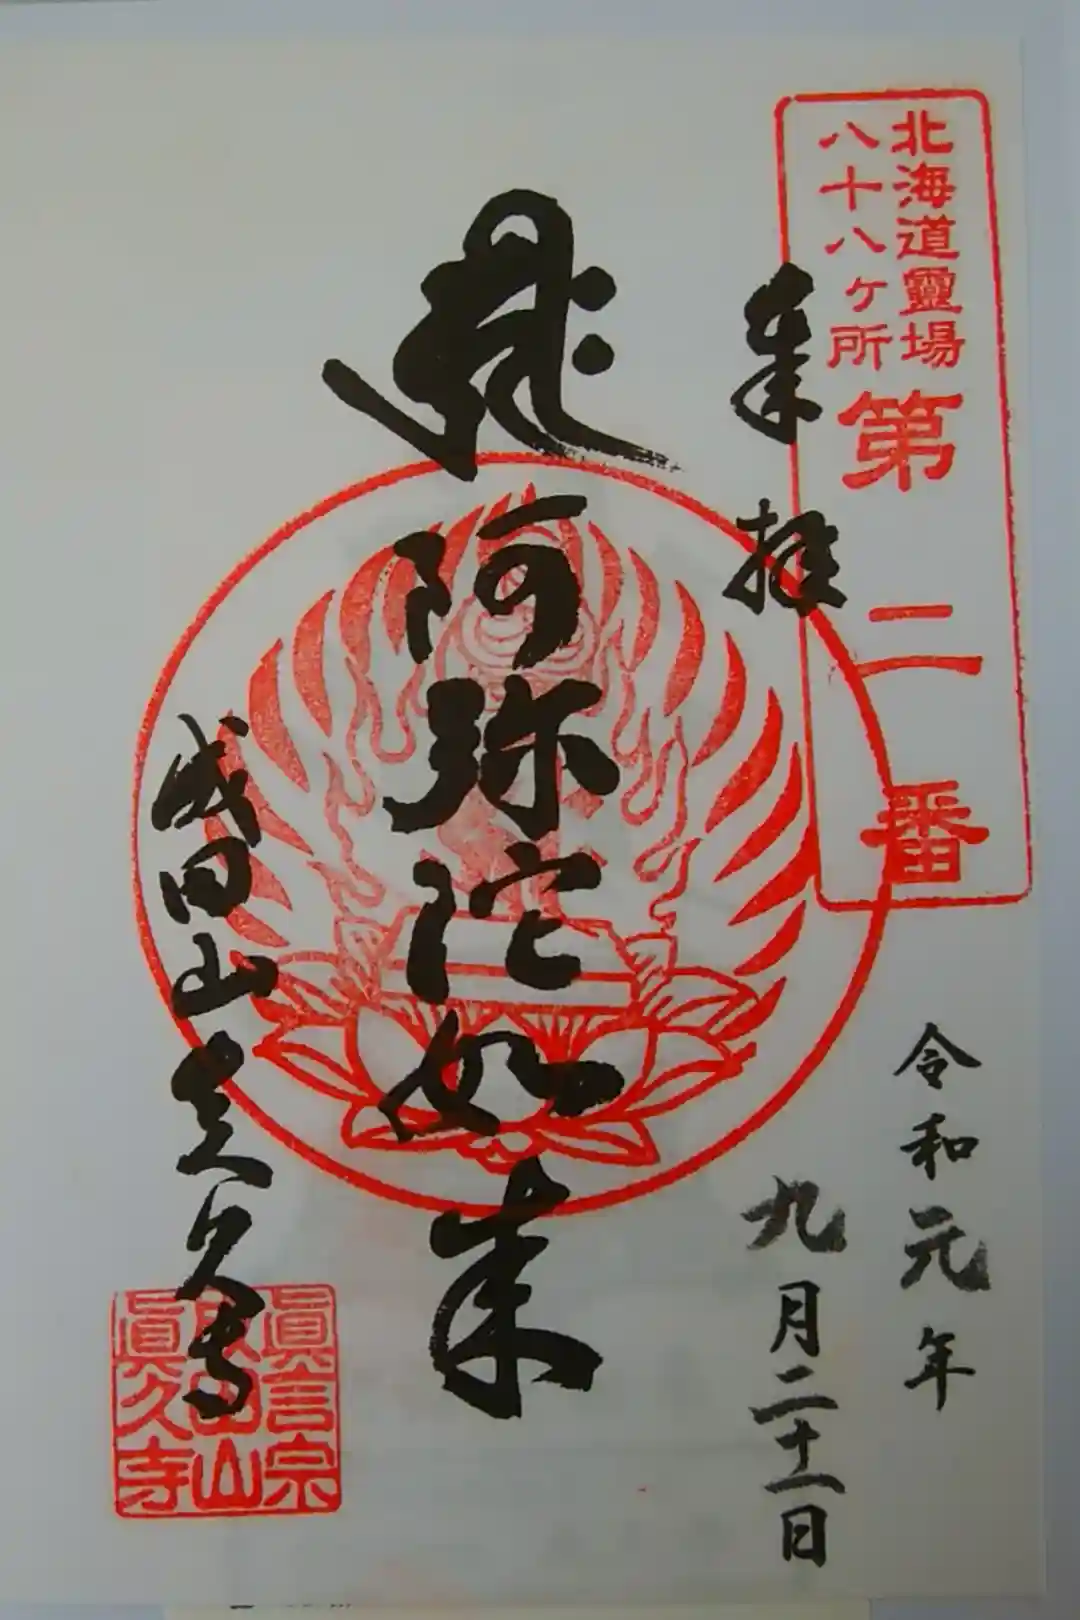 北海道靈場
八十八ケ所
第二番
奉拝
令和元年
九月二十一日
阿弥陀如来
成田山真久寺
眞言宗
成田山
眞久寺